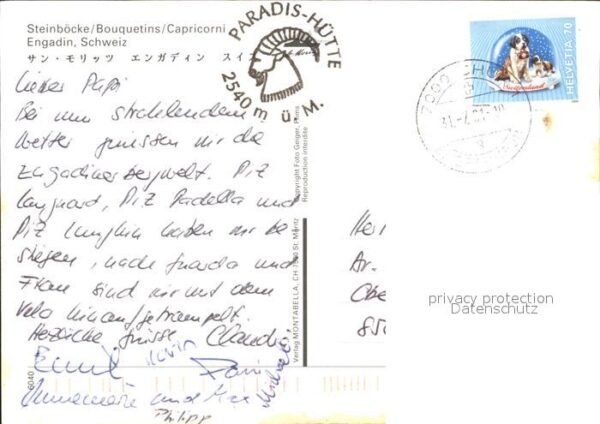 Steinböcke/Bouquetins/Capricorni
Engadin, Schweiz
サン・モリッツ エンガディン スイス
PARADIS-HÜTTE
2540 m ü. M.
Lieber Papi
Bei nun strahlendem
Wetter geniessen wir die
Engadiner Bergwelt. Piz
Languard, Piz Padella und
Piz Lunghin haben wir be
stiegen, nach Guarda und
Ftan sind wir mit dem
Velo hinaufgetrampelt.
Herzliche Grüsse Claudia
Karin
Annemarie und Max
Philipp
6040
Verlag MONTABELLA, CH-7500 St. Moritz
Copyright Foto Geiger, Flims
Reproduction interdite
HELVETIA 70
Switzerland
7000 CHUR
Her
Ar.
Obe
850
privacy protection
Datenschutz